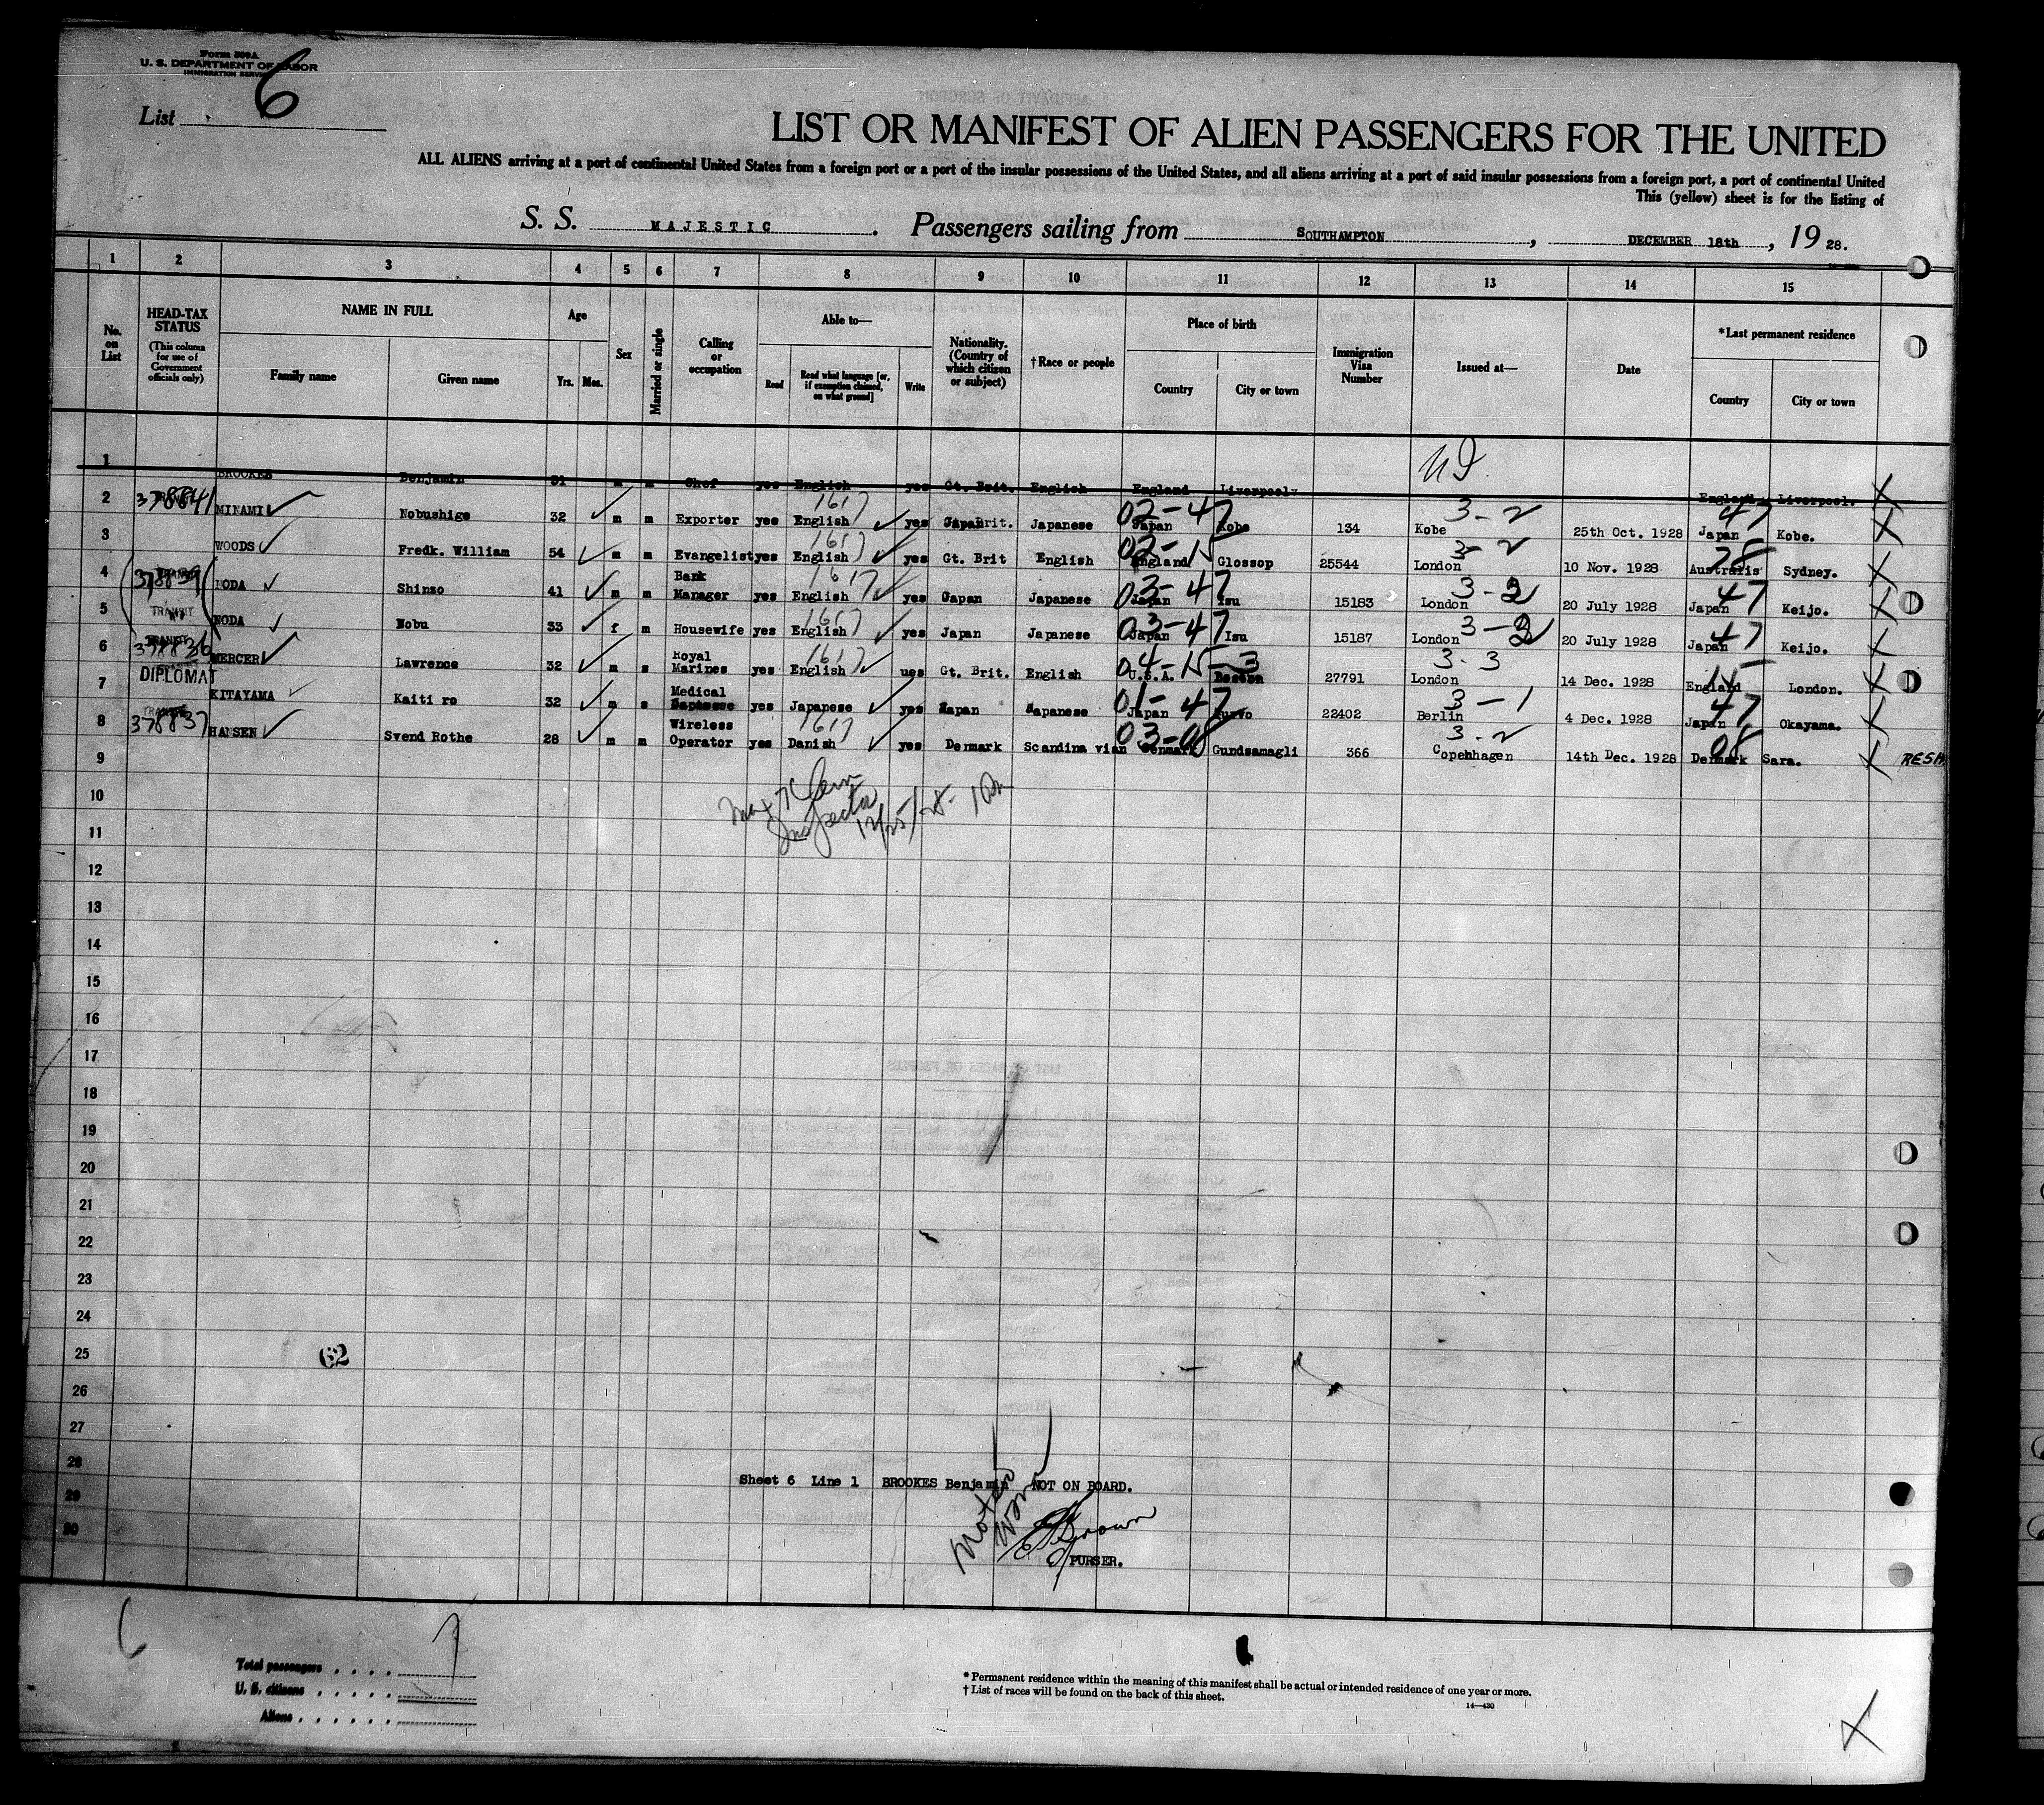 Form 500A
U. S. DEPARTMENT OF LABOR
IMMIGRATION SERVICE
List 6
LIST OR MANIFEST OF ALIEN PASSENGERS FOR THE UNITED
ALL ALIENS arriving at a port of continental United States from a foreign port or a port of the insular possessions of the United States, and all aliens arriving at a port of said insular possessions from a foreign port, a port of continental United
This (yellow) sheet is for the listing of
S. S. MAJESTIC. Passengers sailing from SOUTHAMPTON, DECEMBER 18th, 1928.
1 2 3 4 5 6 7 8 9 10 11 12 13 14 15
No. on List
HEAD-TAX STATUS (This column for use of Government officials only)
NAME IN FULL
Family name
Given name
Age
Yrs. Mos.
Sex
Married or single
Calling or occupation
Able to—
Read
Read what language [or, if exemption claimed, on what ground]
Write
Nationality. (Country of which citizen or subject)
†Race or people
Place of birth
Country
City or town
Immigration Visa Number
Issued at—
Date
*Last permanent residence
Country
City or town
1 BROOKES Benjamin 31 m m Chef yes English yes Gt. Brit. English England Liverpool England Liverpool. X
2 378841 MINAMI Nobushige 32 m m Exporter yes English 1617 yes Japan Japanese 02-47 Japan Kobe 134 Kobe 3-2 25th Oct. 1928 Japan 47 Kobe. X
3 WOODS Fredk. William 54 m m Evangelist yes English 1617 yes Gt. Brit English 02-15 England Glossop 25544 London 3-2 10 Nov. 1928 Australia 28 Sydney. X
4 378839 NODA Shinzo 41 m m Bank Manager yes English 1617 yes Japan Japanese 03-47 Japan Isu 15183 London 3-2 20 July 1928 Japan 47 Keijo. X
5 TRANSIT NODA Nobu 33 f m Housewife yes English 1617 yes Japan Japanese 03-47 Japan Isu 15187 London 3-2 20 July 1928 Japan 47 Keijo. X
6 TRANSIT 378836 MERCER Lawrence 32 m s Royal Marines yes English 1617 ues Gt. Brit. English 04-15-3 U.S.A. Boston 27791 London 3-3 14 Dec. 1928 England 15 London. X
7 DIPLOMAT KITAYAMA Kaiti ro 32 m s Medical yes Japanese yes Japan Japanese 01-47 Japan 22402 Berlin 3-1 4 Dec. 1928 Japan 47 Okayama. X
8 378837 HANSEN Svend Rothe 28 m m Wireless Operator yes Danish 1617 yes Denmark Scandinavian 03-08 Denmark Gundsamagli 366 Copenhagen 3-2 14th Dec. 1928 Denmark 08 Sara. X
9
Inspector
12/25/28
10
11
12
13
14
15
16
17
18
19
20
21
22
23
24
25
62
26
27
28
Sheet 6 Line 1 BROOKES Benjamin NOT ON BOARD.
29
30
Brown
PURSER.
6
Total passengers . . . . 7
U. S. citizens . . . . .
Aliens . . . . . .
* Permanent residence within the meaning of this manifest shall be actual or intended residence of one year or more.
† List of races will be found on the back of this sheet.
14—430
X